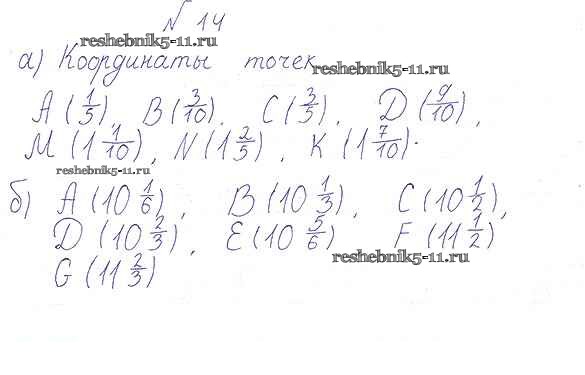 № 14
reshebnik5-11.ru
а) Координаты точек
reshebnik5-11.ru
A (1/5), B (3/10), C (3/5), D (9/10),
M (1 1/10), N (1 2/5), K (1 7/10).
reshebnik5-11.ru
б) A (10 1/6), B (10 1/3), C (10 1/2),
D (10 2/3), E (10 5/6) F (11 1/2)
reshebnik5-11.ru
G (11 2/3)